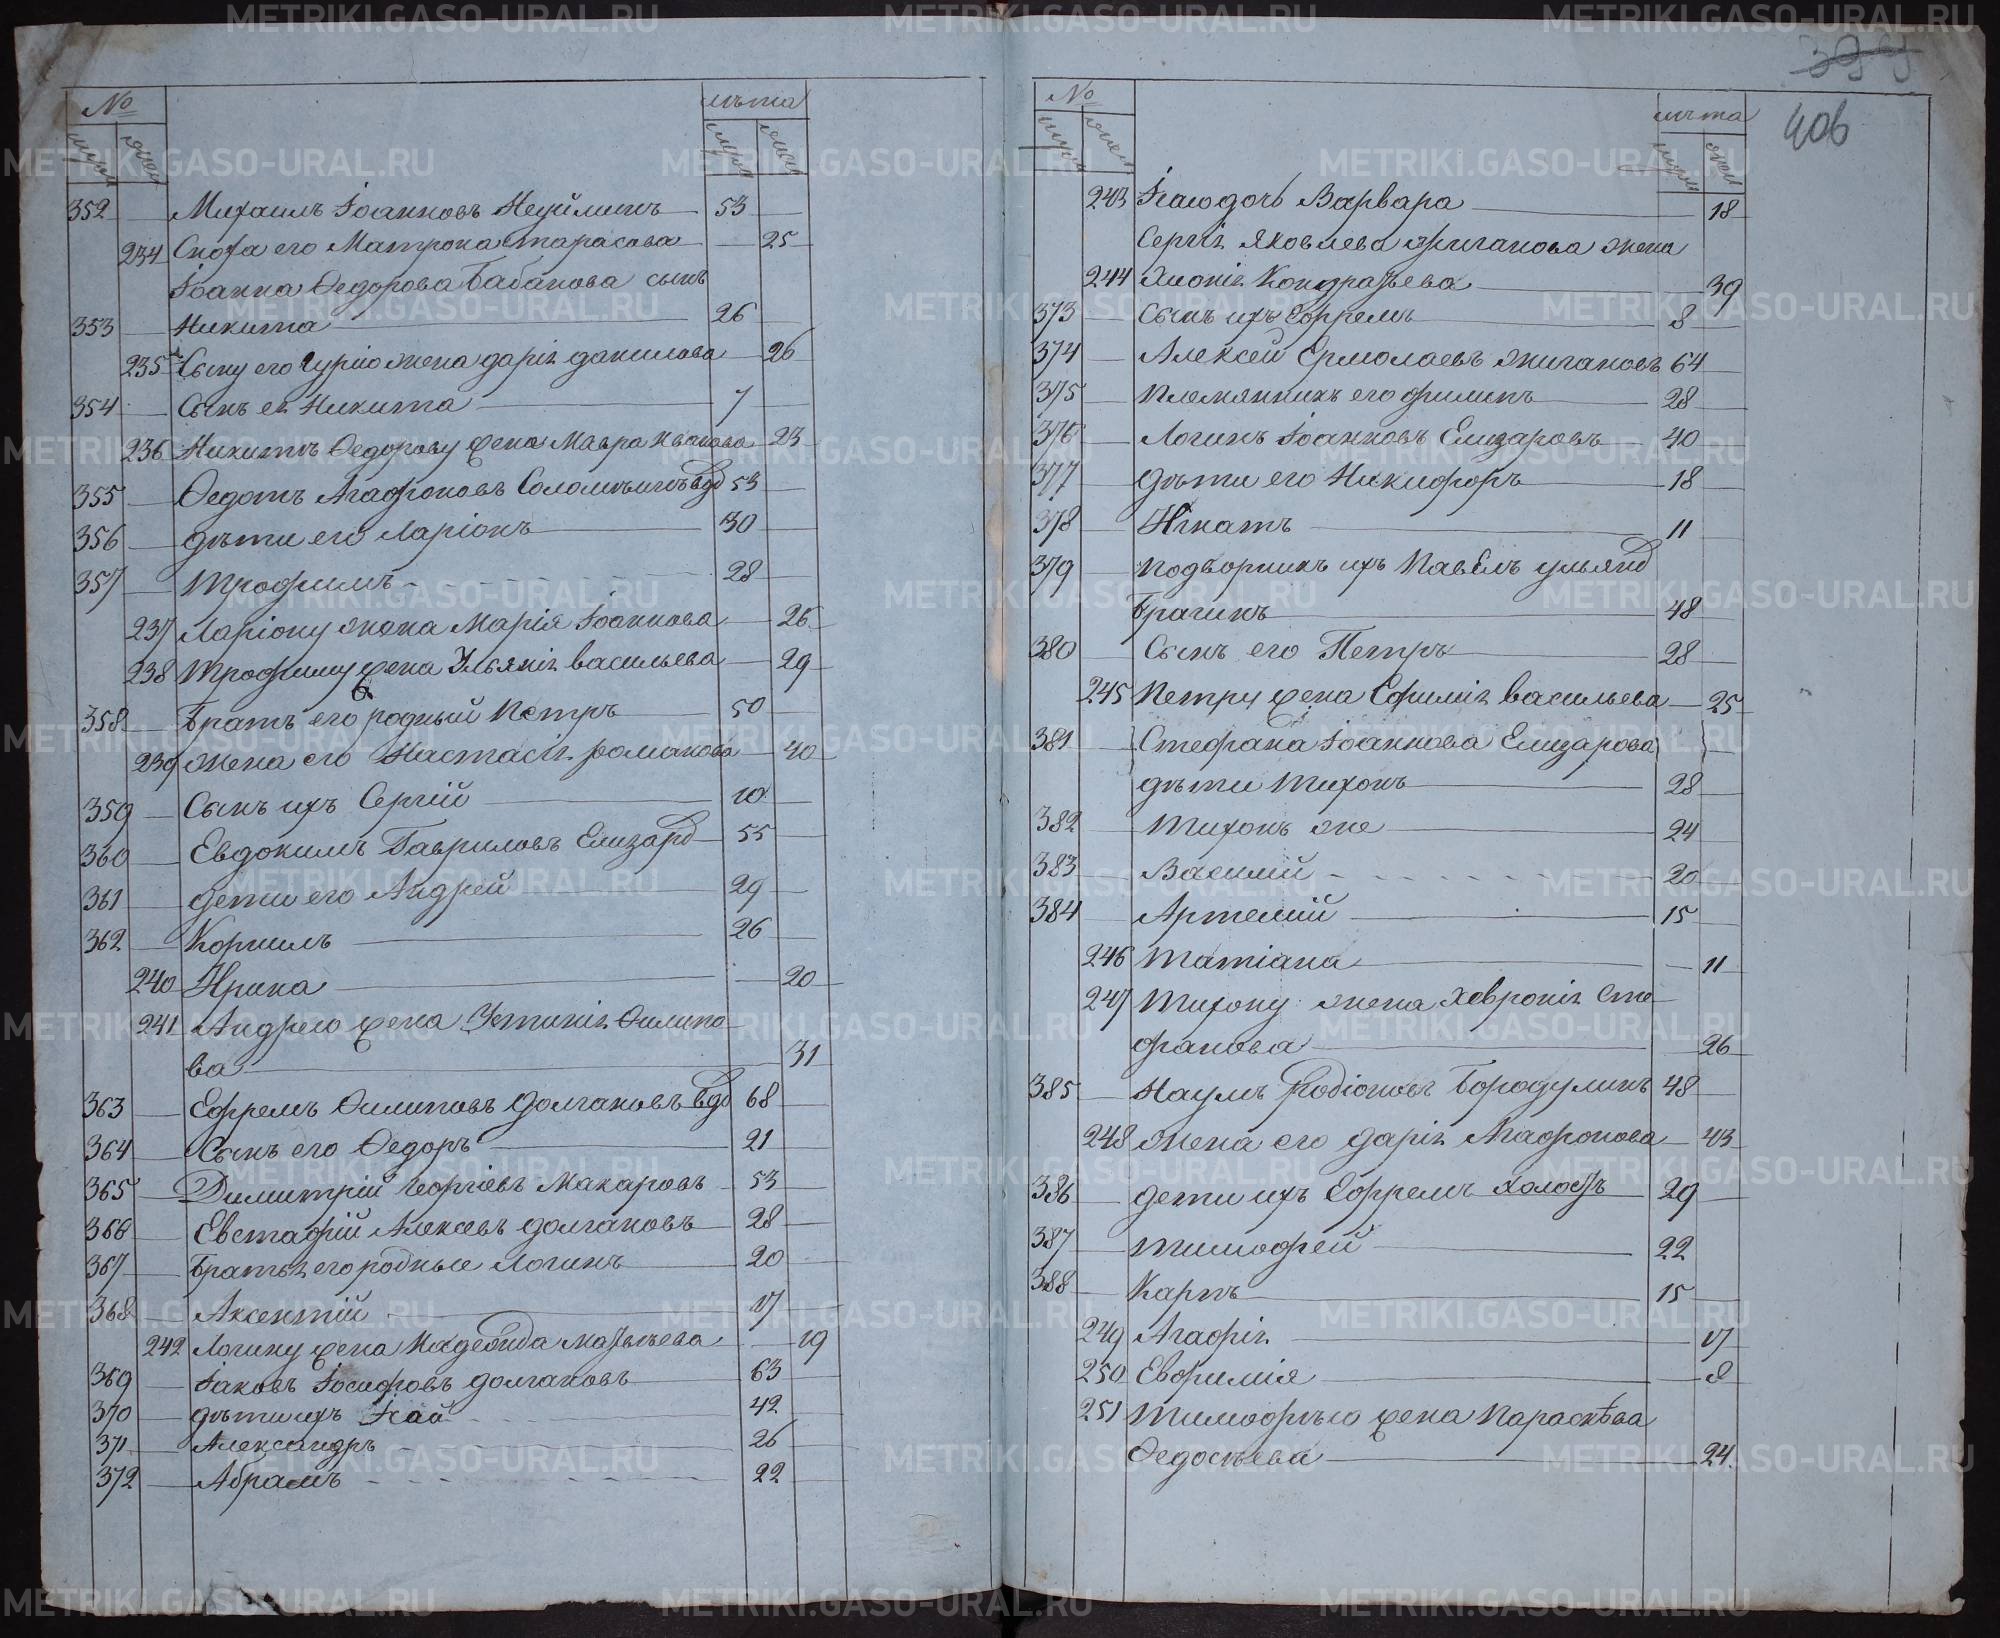 № лѣта
мужеск женск мужеск женск
352 Михаилъ Іоанновъ Неуйминъ 53
234 Сноха его Матрона Тарасова 25
Іоанна Ѳедорова Бабанова сынъ
353 Никита 26
235 Сыну его Гурію жена Дарія Данилова 26
354 Сынъ ея Никита 7
236 Никитѣ Ѳедорову жена Мавра Иванова 23
355 Ѳедотъ Агафоновъ вдо 53
356 дѣти его Ларіонъ 30
357 Трофимъ 28
237 Ларіону жена Марія Іоаннова 26
238 Трофиму жена Ульянія Васильева 29
358 Братъ его родный Петръ 50
239 жена его Настасія Романова 40
359 Сынъ ихъ Сергій 10
360 Евдокимъ Гавриловъ Елизаро 55
361 дети его Андрей 29
362 Корнилъ 26
240 Ирина 20
241 Андрею жена Устинія Филипо
ва 31
363 Ефремъ Филиповъ Долгановъ вдо 68
364 Сынъ его Ѳедоръ 21
365 Димитрій Георгіевъ Макаровъ 53
366 Евстафій Алексѣвъ Долгановъ 28
367 Братья его родные Логинъ 20
368 Аксентій 17
242 Логину жена Надежда Матвѣева 19
369 Іаковъ Іосифовъ Долгановъ 63
370 дѣти ихъ 42
371 Александръ 26
372 Абрамъ 22
399
406
№ лѣта
мужеск женск мужеск женск
243 дочь Варвара 18
Сергія Яковлева Жиганова жена
244 Хіонія Кондратьева 39
373 Сынъ ихъ Ефремъ 8
374 Алексей Ермолаевъ Жигановъ 64
375 Племянникъ его Филипъ 28
376 Логинъ Іоанновъ Елизаровъ 40
377 дѣти его Никифоръ 18
378 Игнатъ 11
379 подворникъ ихъ Павелъ Ульяно
Брагинъ 48
380 Сынъ его Петръ 28
245 Петру жена Ефимія Васильева 25
381 Стефана Іоаннова Елизарова
дѣти Тихонъ 28
382 Тихонъ же 24
383 Василій 20
384 Артемій 15
246 Татіана 11
247 Тихону жена Хевронія Сте
фанова 26
385 Наумъ Родіоновъ Бородулинъ 48
248 жена его Дарія Агафонова 43
386 дети ихъ Ефремъ холостъ 29
387 Тимофей 22
388 Карпъ 15
249 Агафія 17
250 Евфимія 8
251 Тимофѣю жена Параскѣва
Ѳедосѣева 24